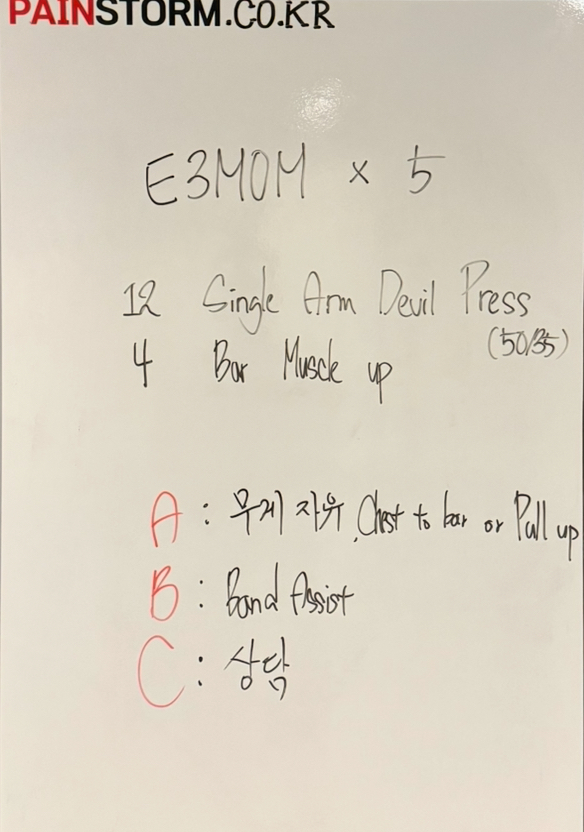 PAINSTORM.CO.KR
E3MOM × 5
12 Single Arm Devil Press
(50/35)
4 Bar Muscle up
A : 무게 자유, Chest to bar or Pull up
B : Band Assist
C : 상담